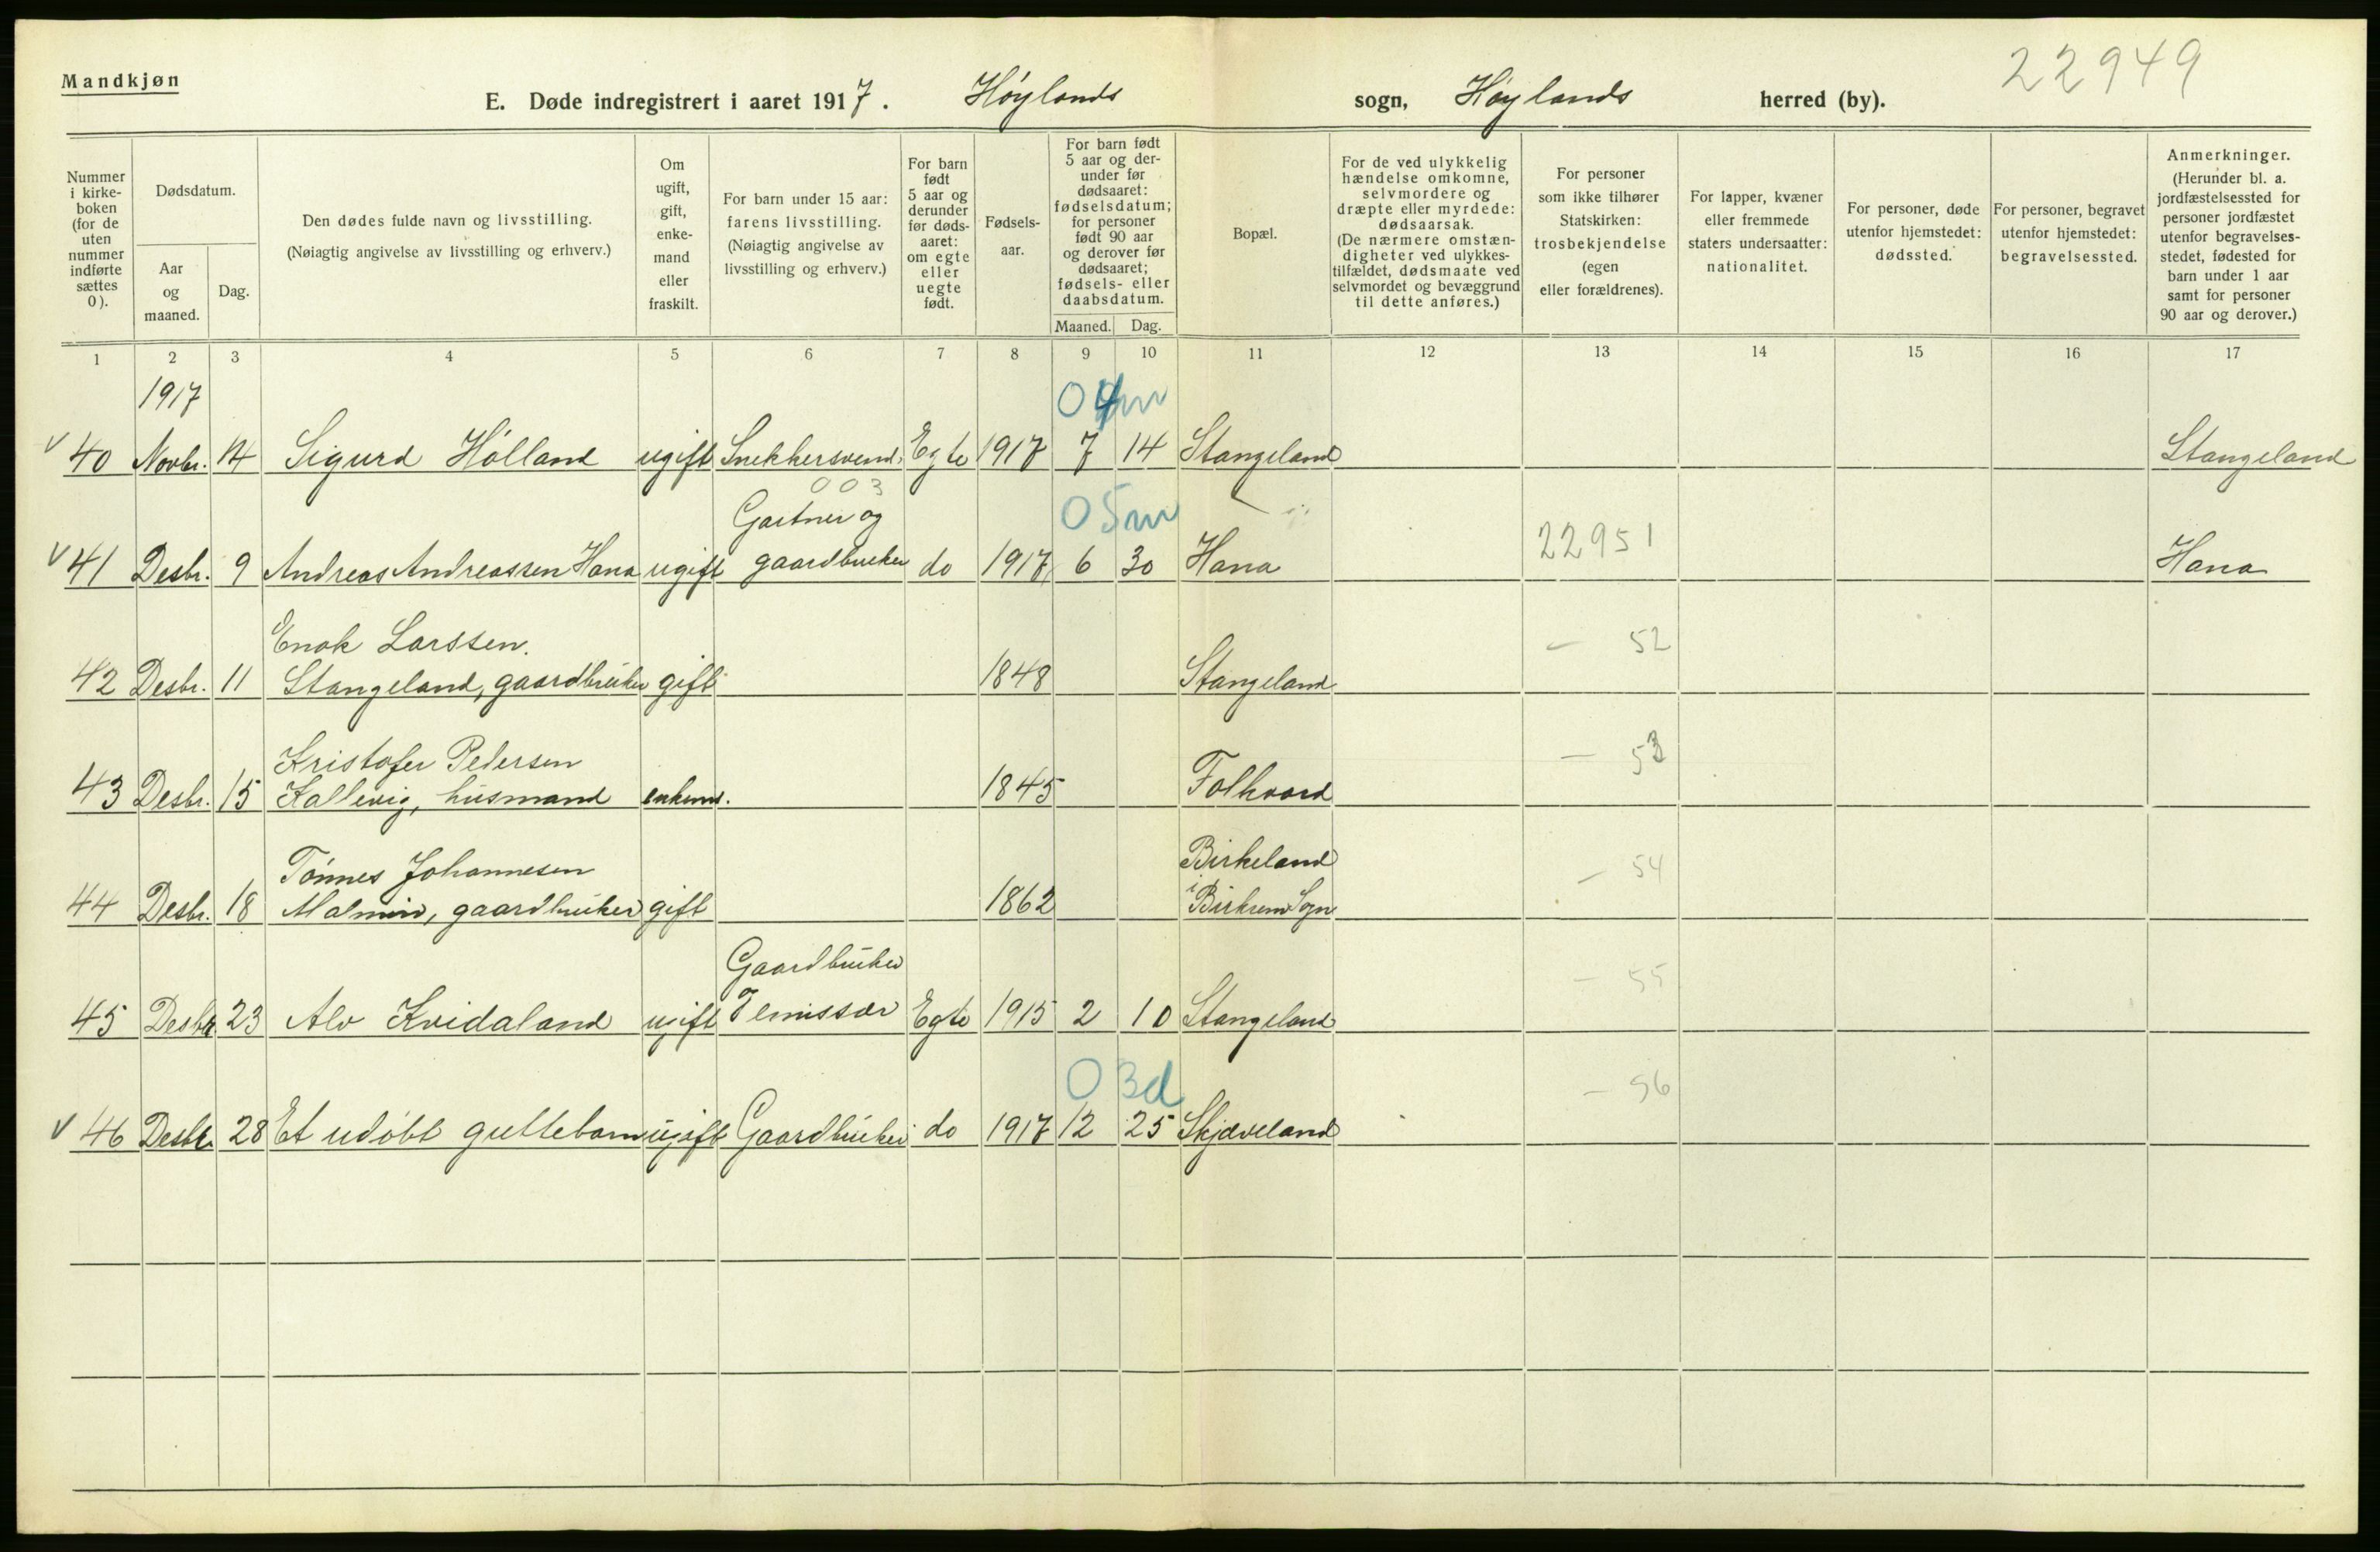 Mandkjøn
E. Døde indregistrert i aaret 1917. Høylands sogn, Høylands herred (by).
22949
Nummer i kirke- boken (for de uten nummer indførte sættes 0).
Dødsdatum.
Aar og maaned.
Dag.
Den dødes fulde navn og livsstilling.
(Nøiagtig angivelse av livsstilling og erhverv.)
Om ugift, gift, enke- mand eller fraskilt.
For barn under 15 aar: farens livsstilling. (Nøiagtig angivelse av livsstilling og erhverv.)
For barn født 5 aar og derunder før døds- aaret: om egte eller uegte født.
Fødsels- aar.
For barn født 5 aar og der- under før dødsaaret: fødselsdatum; for personer født 90 aar og derover før dødsaaret; fødsels- eller daabsdatum.
Maaned. Dag.
Bopæl.
For de ved ulykkelig hændelse omkomne, selvmordere og dræpte eller myrdede: dødsaarsak. (De nærmere omstæn- digheter ved ulykkes- tilfældet, dødsmaate ved selvmordet og bevæggrund til dette anføres.)
For personer som ikke tilhører Statskirken: trosbekjendelse (egen eller forældrenes).
For lapper, kvæner eller fremmede staters undersaatter: nationalitet.
For personer, døde utenfor hjemstedet: dødssted.
For personer, begravet utenfor hjemstedet: begravelsessted.
Anmerkninger. (Herunder bl. a. jordfæstelsessted for personer jordfæstet utenfor begravelses- stedet, fødested for barn under 1 aar samt for personer 90 aar og derover.)
1 2 3 4 5 6 7 8 9 10 11 12 13 14 15 16 17
1917
04m
v 40 Novbr. 14 Sigurd Hølland ugift Snekkersvend. Egte 1917 7 14 Stangeland Stangeland
003
Gartner og 05m
22951
v 41 Desbr. 9 Andreas Andreassen Hana ugift gaardbruker do 1917 6 30 Hana Hana
Enok Larssen.
— 52
42 Desbr. 11 Stangeland, gaardbruker gift 1848 Stangeland
Kristofer Pedersen
— 53
43 Desbr. 15 Kallevig, husmand enkem. 1845 Folkvord
Tønnes Johannesen Birkeland
— 54
44 Desbr. 18 Malmin, gaardbruker gift 1862 i Birkrem Sogn
Gaardbruker
— 55
45 Desbr. 23 Alv Kvidaland ugift og emissær Egte 1915 2 10 Stangeland
03d
— 56
v 46 Desbr. 28 Et udøbt guttebarn ugift Gaardbruker do 1917 12 25 Skjæveland